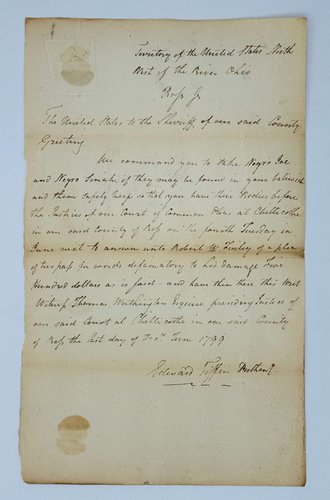 Territory of the United States North
West of the River Ohio
Ross Ss
The United States to the Sheriff of our said County
Greeting
We command you to take Negro Joe
and Negro Dinah if they may be found in your bailiwick
and them safely keep so that you have their Bodies before
the Justices of our Court of Common Pleas at Chillicothe
in our said County of Ross on the fourth Tuesday in
June next to answer unto Robert W Finley of a plea
of trespass for words defamatory to his damage Five
Hundred dollars as is said - and have then there this Writ
Witness Thomas Worthington Esquire presiding Justice of
our said Court at Chillicothe in our said County
of Ross the last day of Decr. Term 1799
Edward Tiffin Prothony